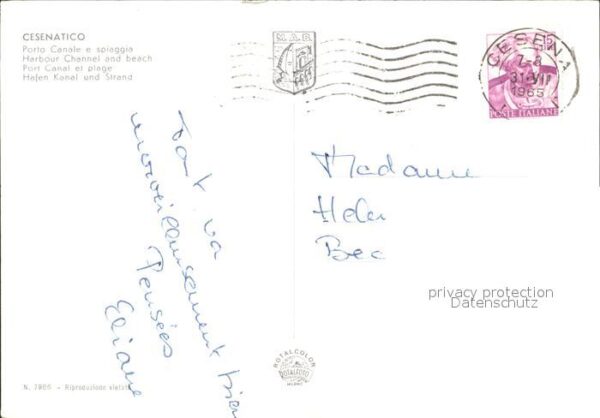 CESENATICO
Porto Canale e spiaggia
Harbour Channel and beach
Port Canal et plage
Hafen Kanal und Strand
M.A.B.
CESENA
7-8
1965
POSTE ITALIANE
Tout va
merveilleusement bien
Pensées
Eliane
Madame
Bec
privacy protection
Datenschutz
ROTALCOLOR
ROTALFOTO
MILANO
N. 7966 - Riproduzione vietata